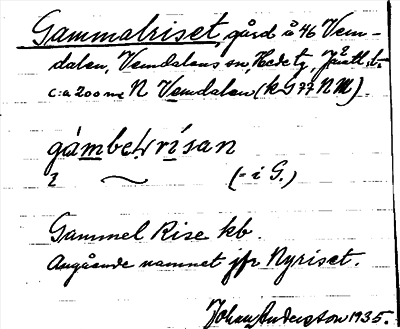 Gammalriset, gård å 46 Vem-
dalen, Vemdalens sn, Hede tg, Jämtl. l.
c:a 200 m N Vemdalen (k G 77 N M).
gámbeḷrísan
2 ⁓ (- i G.)
Gammel Rise kb.
Angående namnet jfr Nyriset.
Johan Anderson 1935.